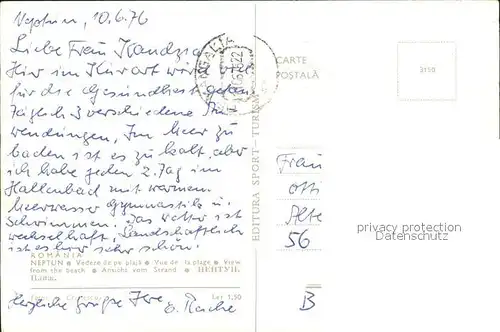 Neptun, 10.6.76
Liebe Frau
Hier im Kurort wird viel
für die Gesundheit getan.
Täglich 3 verschiedene An-
wendungen. Im Meer zu
baden ist es zu kalt, aber
ich habe jeden 2. Tag im
Hallenbad mit warmem
Meerwasser Gymnastik u.
Schwimmen. Das Wetter ist
wechselhaft, Landschaftlich
ist es hier sehr schön.
ROMÂNIA
NEPTUN ● Vedere de pe plajă ● Vue de la plage ● View
from the beach ● Ansicht vom Strand ● НЕПТУН.
Пляж.
Lei 1,50
Herzliche Grüße Ihre
EDITURA SPORT-TURISM
MANGALIA
CARTE
POSTALĂ
3150
Frau
Otti
Alte
56
B
privacy protection
www.oldthing.com